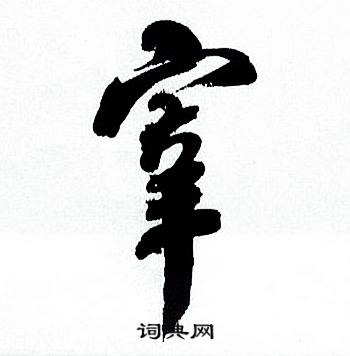 宰
词典网